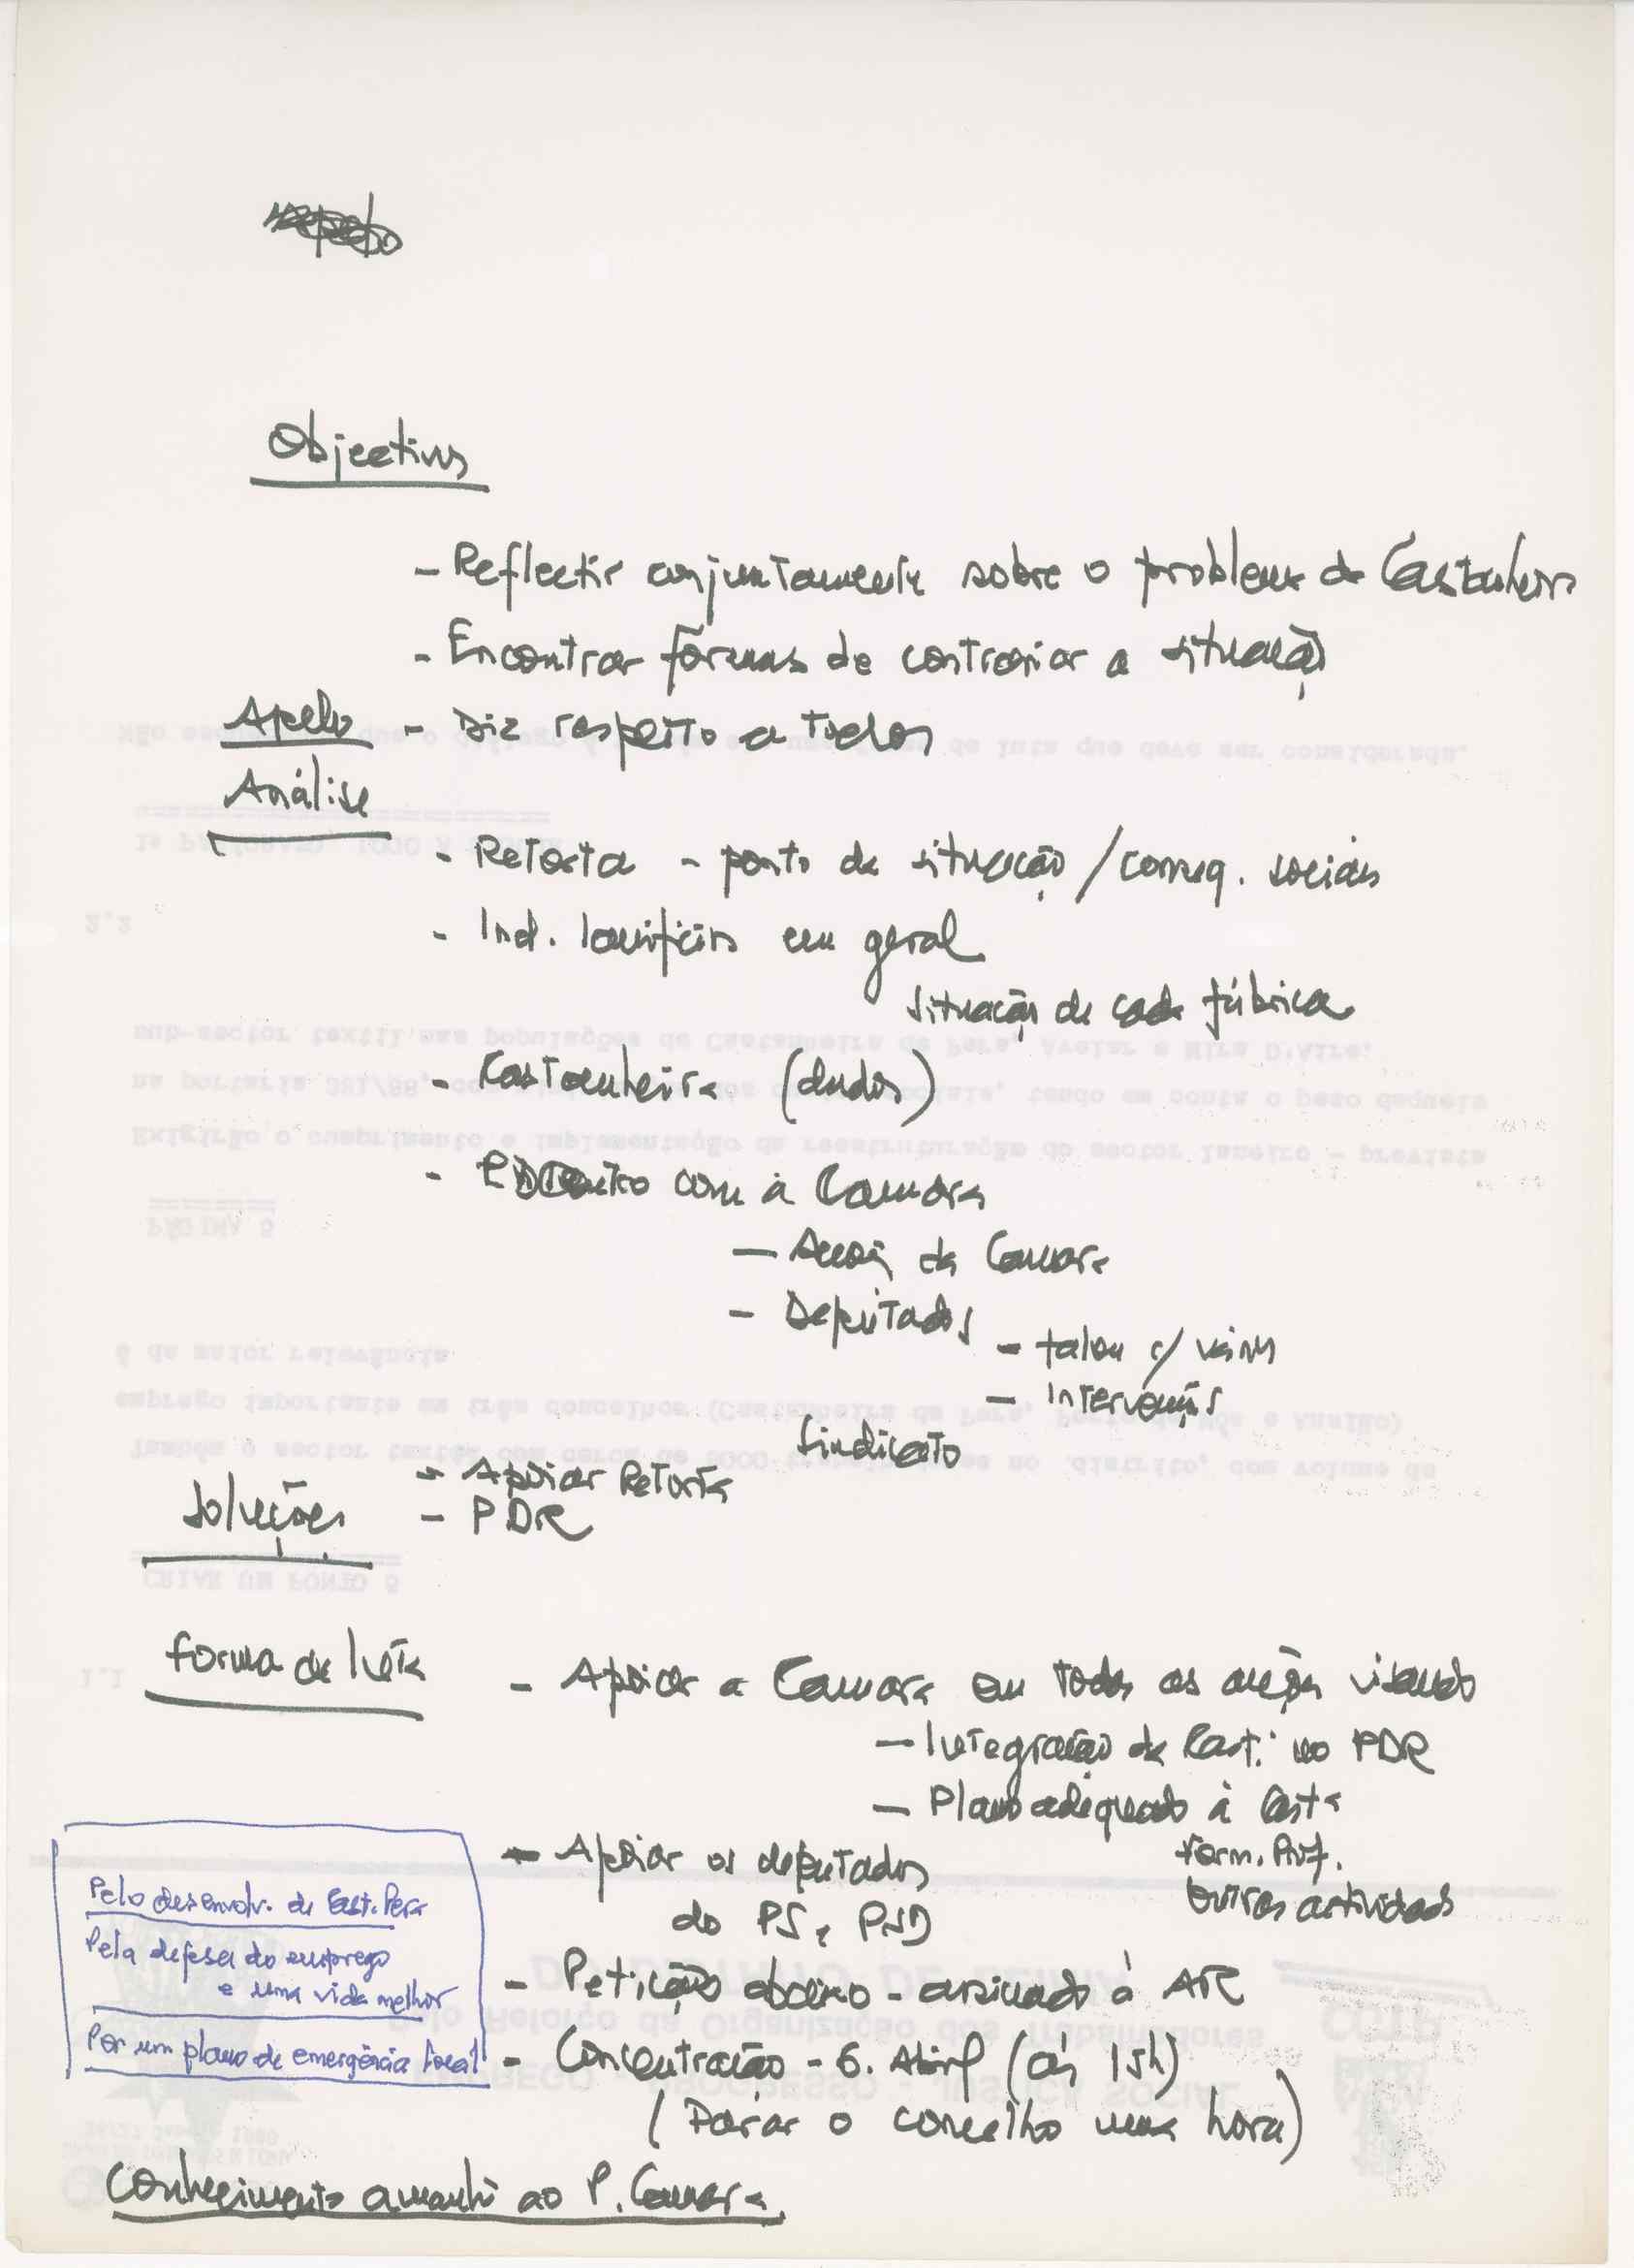 Objectivos
- Reflectir conjuntamente sobre o problema da Castanheira
- Encontrar formas de contrariar a situação
Apelo - Diz respeito a todos
Análise
- Retorta - ponto da situação / conseq. sociais
- Ind. lanifícios em geral
situação de cada fábrica
- Castanheira (dados)
- Encontro com a Camara
- Acção da Camara
- Deputados
- falou c/ vários
- Intervenções
Sindicato
- Apoiar Retorta
Soluções - PDR
forma de luta - Apoiar a Camara em todas as acções visando
- Integração da Cast. no PDR
- Plano adequado à Casta
form. Prof.
outras actividades
- Apoiar os deputados
do PS e PSD
Pelo desenvolv. de Cast. Pera
Pela defesa do emprego
e uma vida melhor
Por um plano de emergência local
- Petição abaixo-assinado à AR
- Concentração - 6. Abril (ás 15h)
(Parar o concelho uma hora)
Conhecimento amanhã ao P. Camara